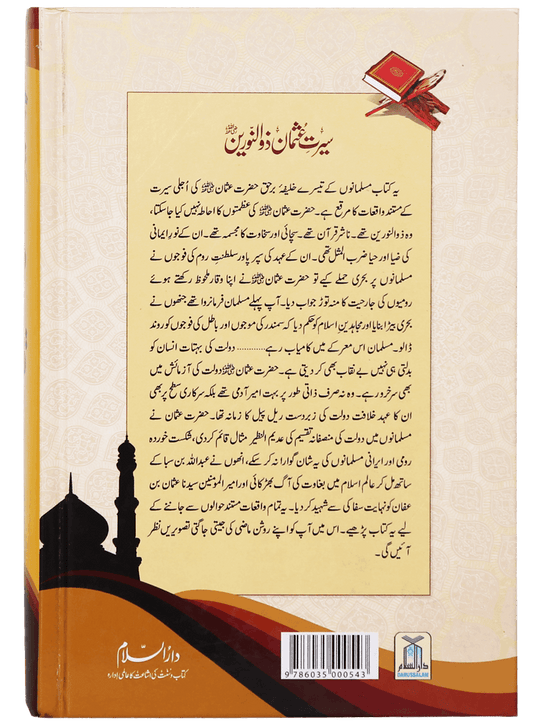 سیرتِ عثمان ذوالنورین ؓ
یہ کتاب مسلمانوں کے تیسرے خلیفۂ برحق حضرت عثمان ؓ کی اُجلی سیرت
کے مستند واقعات کا مرقع ہے۔ حضرت عثمان ؓ کی عظمتوں کا احاطہ نہیں کیا جاسکتا،
وہ ذوالنورین تھے۔ ناشرِ قرآن تھے۔ سچائی اور سخاوت کا مجسمہ تھے۔ ان کے نورِ ایمانی
کی ضیا اور حیا ضرب المثل تھی۔ ان کے عہد کی سپر پاور سلطنتِ روم کی فوجوں نے
مسلمانوں پر بحری حملے کیے تو حضرت عثمان ؓ نے اپنا وقار ملحوظ رکھتے ہوئے
رومیوں کی جارحیت کا منہ توڑ جواب دیا۔ آپ پہلے مسلمان فرمانروا تھے جنھوں نے
بحری بیڑا بنایا اور مجاہدینِ اسلام کو حکم دیا کہ سمندر کی موجوں اور باطل کی فوجوں کو روند
ڈالو۔ مسلمان اس معرکے میں کامیاب رہے ............ دولت کی بہتات انسان کو
بدلتی ہی نہیں بے نقاب بھی کر دیتی ہے۔ حضرت عثمان ؓ دولت کی آزمائش میں
بھی سرخرو رہے۔ وہ نہ صرف ذاتی طور پر بہت امیر آدمی تھے بلکہ سرکاری سطح پر بھی
ان کا عہدِ خلافت دولت کی زبردست ریل پیل کا زمانہ تھا۔ حضرت عثمان نے
مسلمانوں میں دولت کی منصفانہ تقسیم کی عدیم النظیر مثال قائم کر دی، شکست خوردہ
رومی اور ایرانی مسلمانوں کی یہ شان گوارا نہ کر سکے، انھوں نے عبداللہ بن سبا کے
ساتھ مل کر عالمِ اسلام میں بغاوت کی آگ بھڑکائی اور امیر المؤمنین سیدنا عثمان بن
عفان کو نہایت سفاکی سے شہید کر دیا۔ یہ تمام واقعات مستند حوالوں سے جاننے کے
لیے یہ کتاب پڑھیے۔ اس میں آپ کو اپنے روشن ماضی کی جیتی جاگتی تصویریں نظر
آئیں گی۔
دارُالسّلام
کتاب و سنت کی اشاعت کا عالمی ادارہ
9 786035 000543
دارالسلام
DARUSSALAM